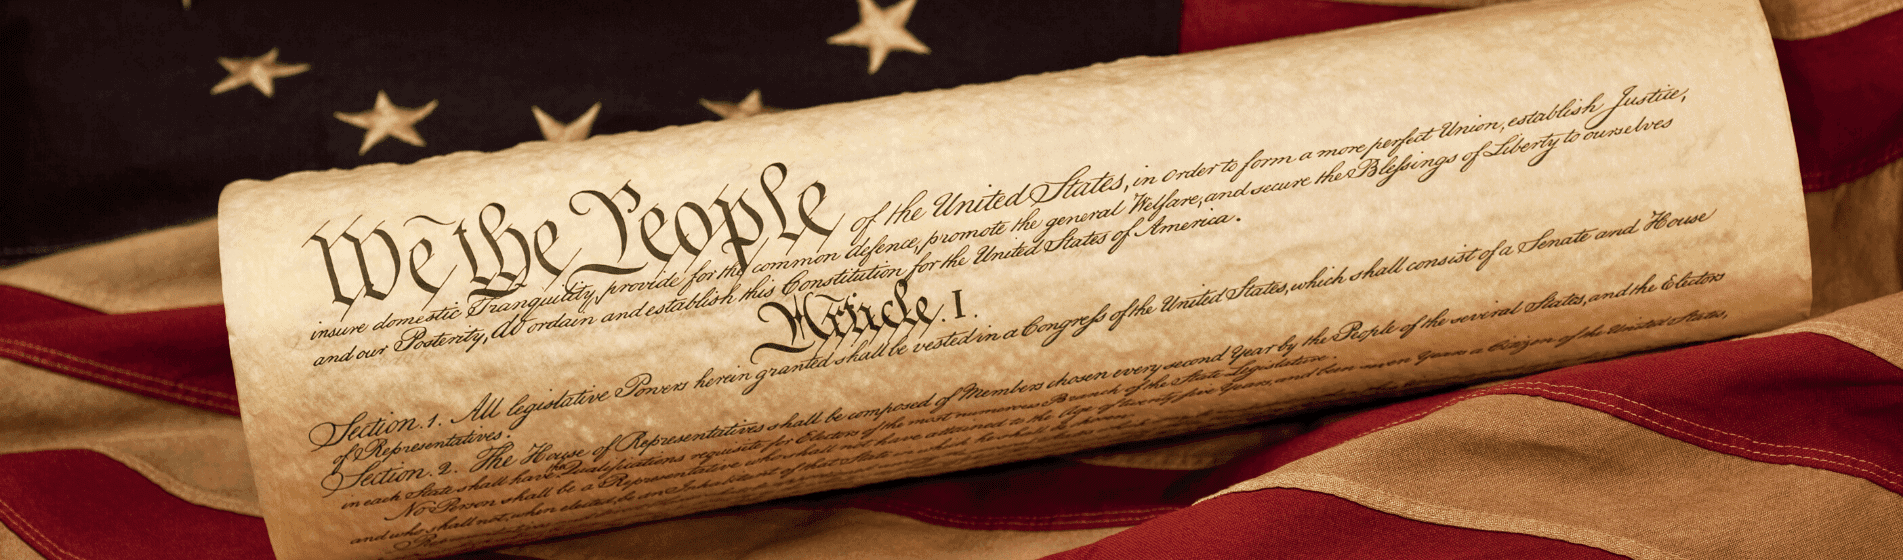 We the People of the United States, in order to form a more perfect Union, establish Justice,
insure domestic Tranquility, provide for the common defence, promote the general Welfare, and secure the Blessings of Liberty to ourselves
and our Posterity, do ordain and establish this Constitution for the United States of America.
Article. I.
Section. 1. All legislative Powers herein granted shall be vested in a Congress of the United States, which shall consist of a Senate and House
of Representatives.
Section. 2. The House of Representatives shall be composed of Members chosen every second Year by the People of the several States, and the Electors
in each State shall have the Qualifications requisite for Electors of the most numerous Branch of the State Legislature.
No Person shall be a Representative who shall not have attained to the Age of twenty five Years, and been seven Years a Citizen of the United States,
and who shall not, when elected, be an Inhabitant of that State in which he shall be chosen.